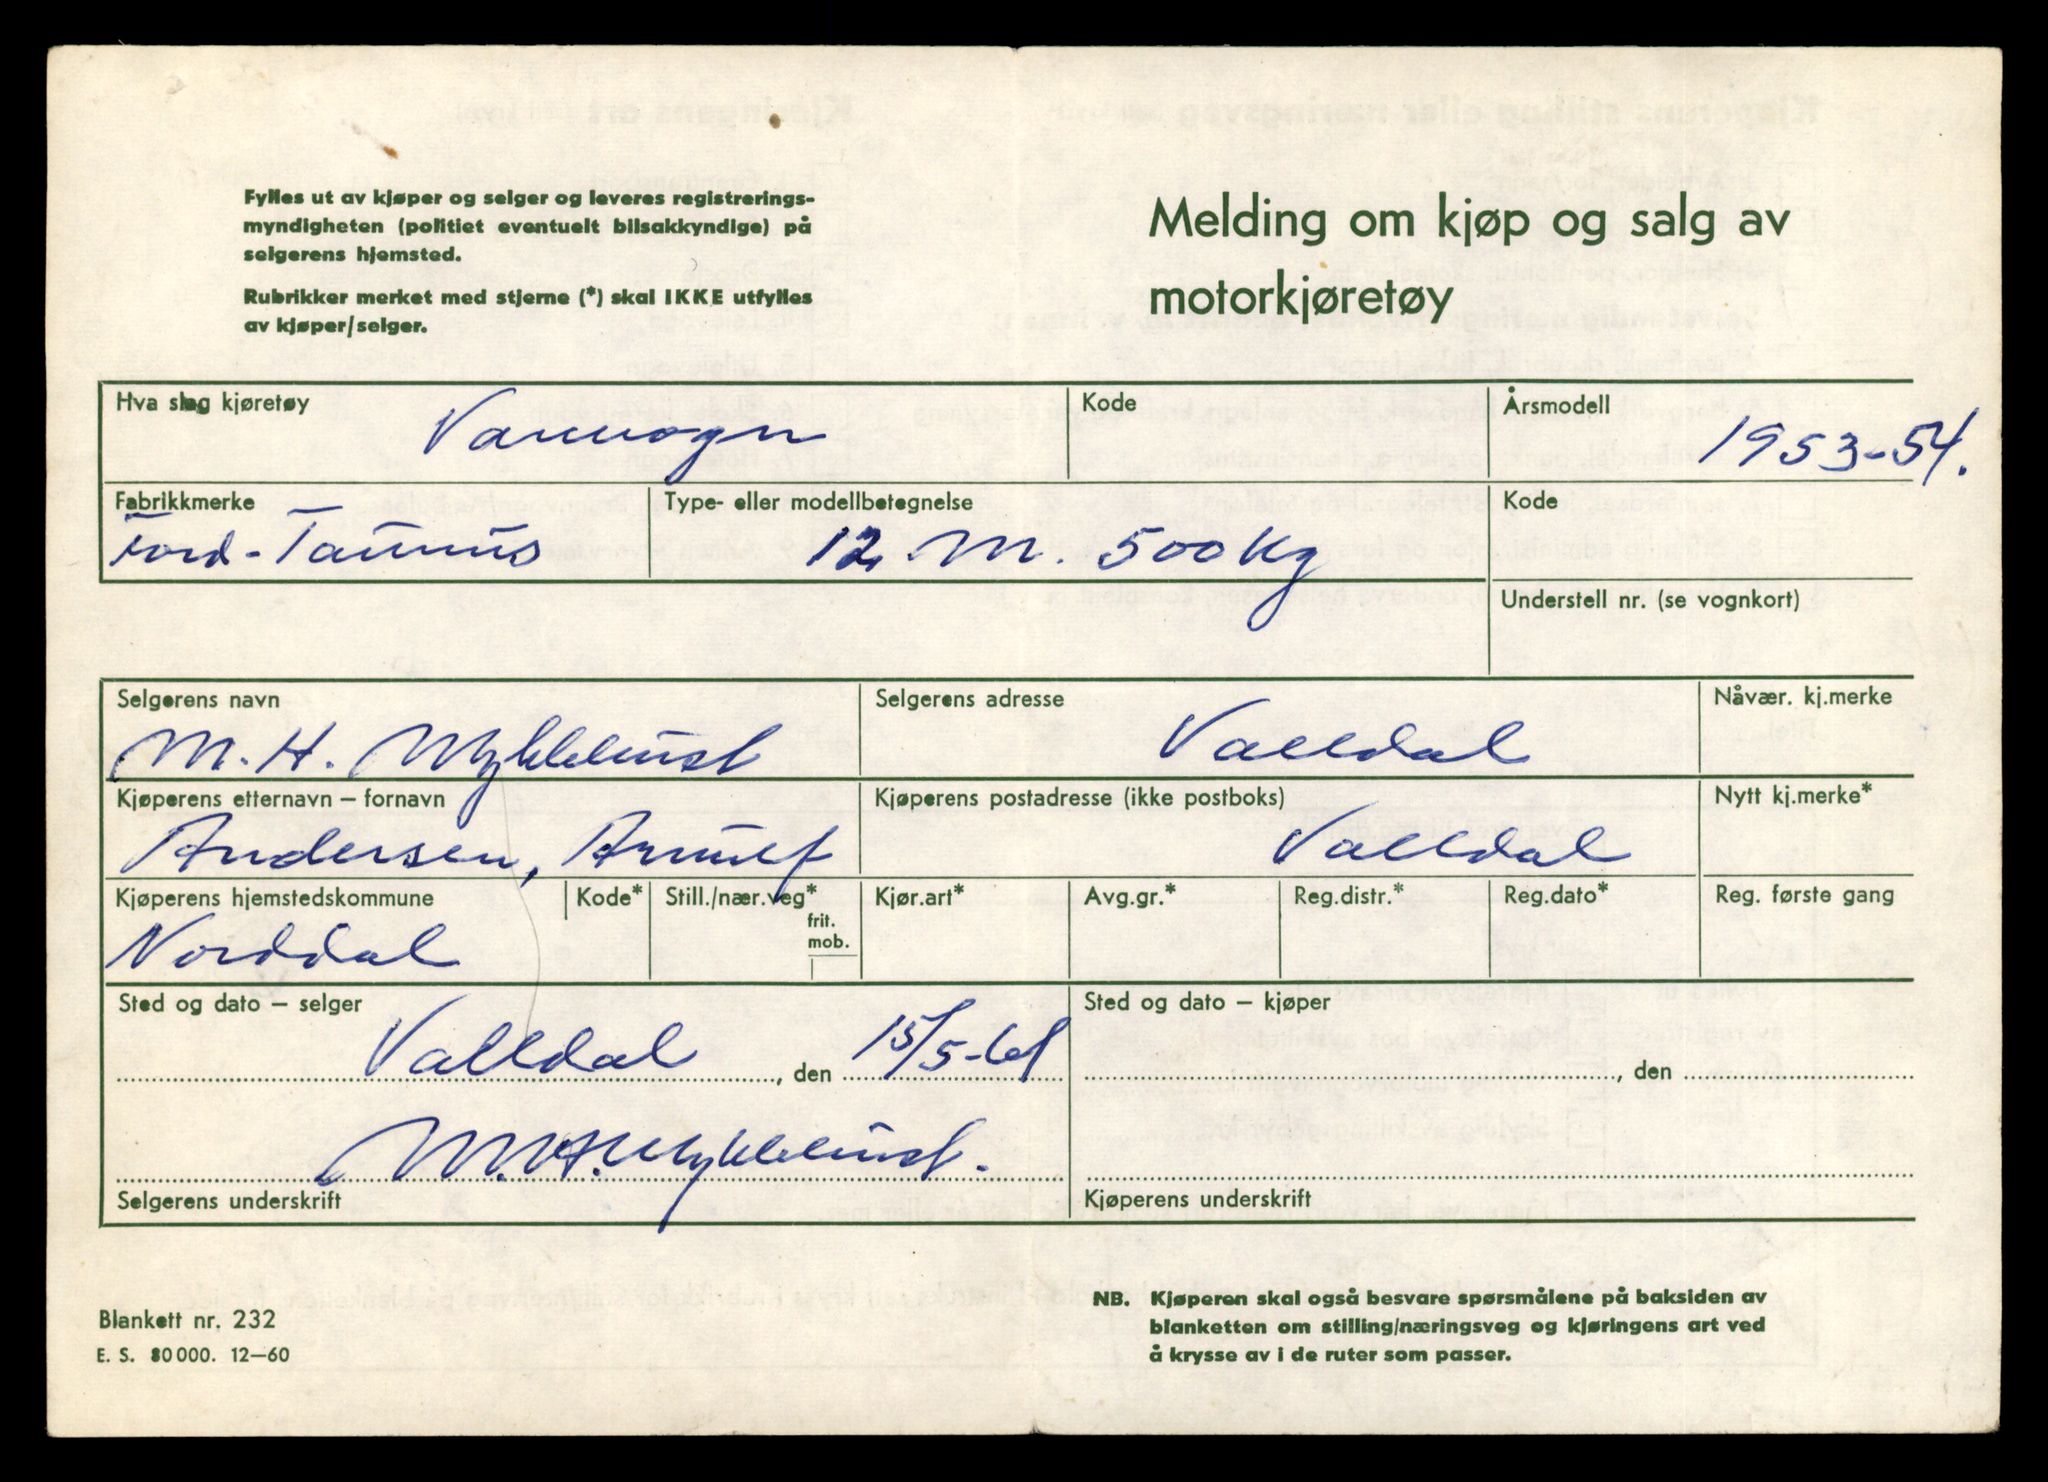 Fylles ut av kjøper og selger og leveres registrerings-
myndigheten (politiet eventuelt bilsakkyndige) på
selgerens hjemsted.
Rubrikker merket med stjerne (*) skal IKKE utfylles
av kjøper/selger.
Melding om kjøp og salg av
motorkjøretøy
Hva slag kjøretøy
Varevogn
Kode
Årsmodell
1953-54.
Fabrikkmerke
Ford-Taunus
Type- eller modellbetegnelse
12 M. 500 kg
Kode
Understell nr. (se vognkort)
Selgerens navn
M. H. Myklebust
Selgerens adresse
Valldal
Nåvær. kj.merke
Kjøperens etternavn – fornavn
Andersen, Arnulf
Kjøperens postadresse (ikke postboks)
Valldal
Nytt kj.merke*
Kjøperens hjemstedskommune
Norddal
Kode*
Still./nær.veg*
frit.
mob.
Kjør.art*
Avg.gr.*
Reg.distr.*
Reg.dato*
Reg. første gang
Sted og dato – selger
Valldal, den 15/5-61
M. H. Myklebust.
Selgerens underskrift
Sted og dato – kjøper
, den
Kjøperens underskrift
Blankett nr. 232
E. S. 80000. 12–60
NB. Kjøperen skal også besvare spørsmålene på baksiden av
blanketten om stilling/næringsveg og kjøringens art ved
å krysse av i de ruter som passer.